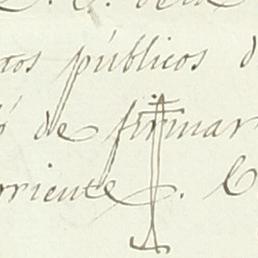 tos públicos d
ó de firmar
rriente. C